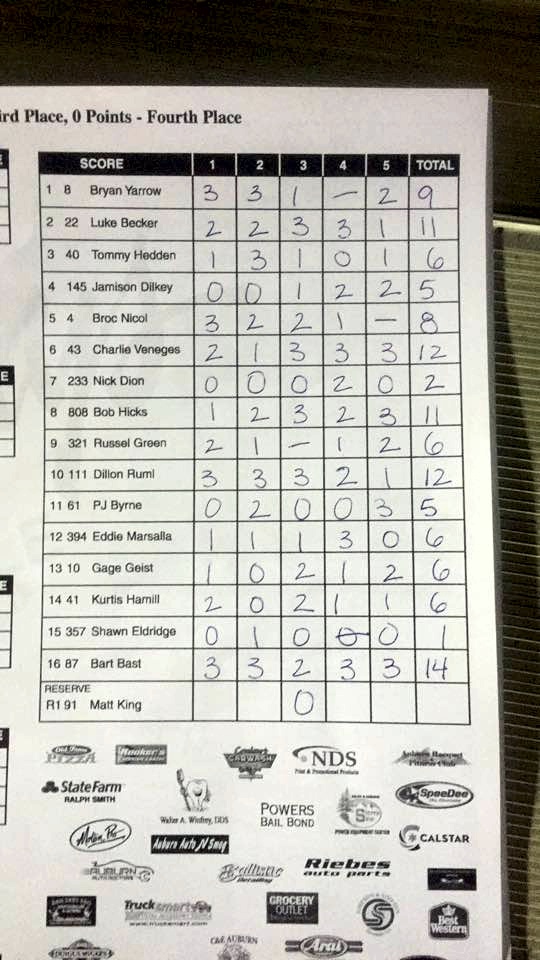 ird Place, 0 Points - Fourth Place
E SCORE 1 2 3 4 5 TOTAL
1 8 Bryan Yarrow 3 3 1 — 2 9
2 22 Luke Becker 2 2 3 3 1 11
3 40 Tommy Hedden 1 3 1 0 1 6
4 145 Jamison Dilkey 0 0 1 2 2 5
5 4 Broc Nicol 3 2 2 1 — 8
6 43 Charlie Veneges 2 1 3 3 3 12
E
7 233 Nick Dion 0 0 0 2 0 2
8 808 Bob Hicks 1 2 3 2 3 11
9 321 Russel Green 2 1 — 1 2 6
10 111 Dillon Ruml 3 3 3 2 1 12
11 61 PJ Byrne 0 2 0 0 3 5
12 394 Eddie Marsalla 1 1 1 3 0 6
13 10 Gage Geist 1 0 2 1 2 6
E
14 41 Kurtis Hamill 2 0 2 1 1 6
15 357 Shawn Eldridge 0 1 0 0 0 1
16 87 Bart Bast 3 3 2 3 3 14
RESERVE
R1 91 Matt King 0
E
Old Town PIZZA
CARWASH
NDS
Print & Promotional Products
Auburn Racquet
Fitness Club
StateFarm
RALPH SMITH
Walter A. Winfrey, DDS
POWERS
BAIL BOND
POWER EQUIPMENT CENTER
SpeeDee
Motion Pro
Auburn Auto N Smog
CALSTAR
AUBURN
Ballistic
Detailing
Riebes
auto parts
Trucksmart
www.trucksmart.com
GROCERY
OUTLET
Best
Western
C&E AUBURN
Arai